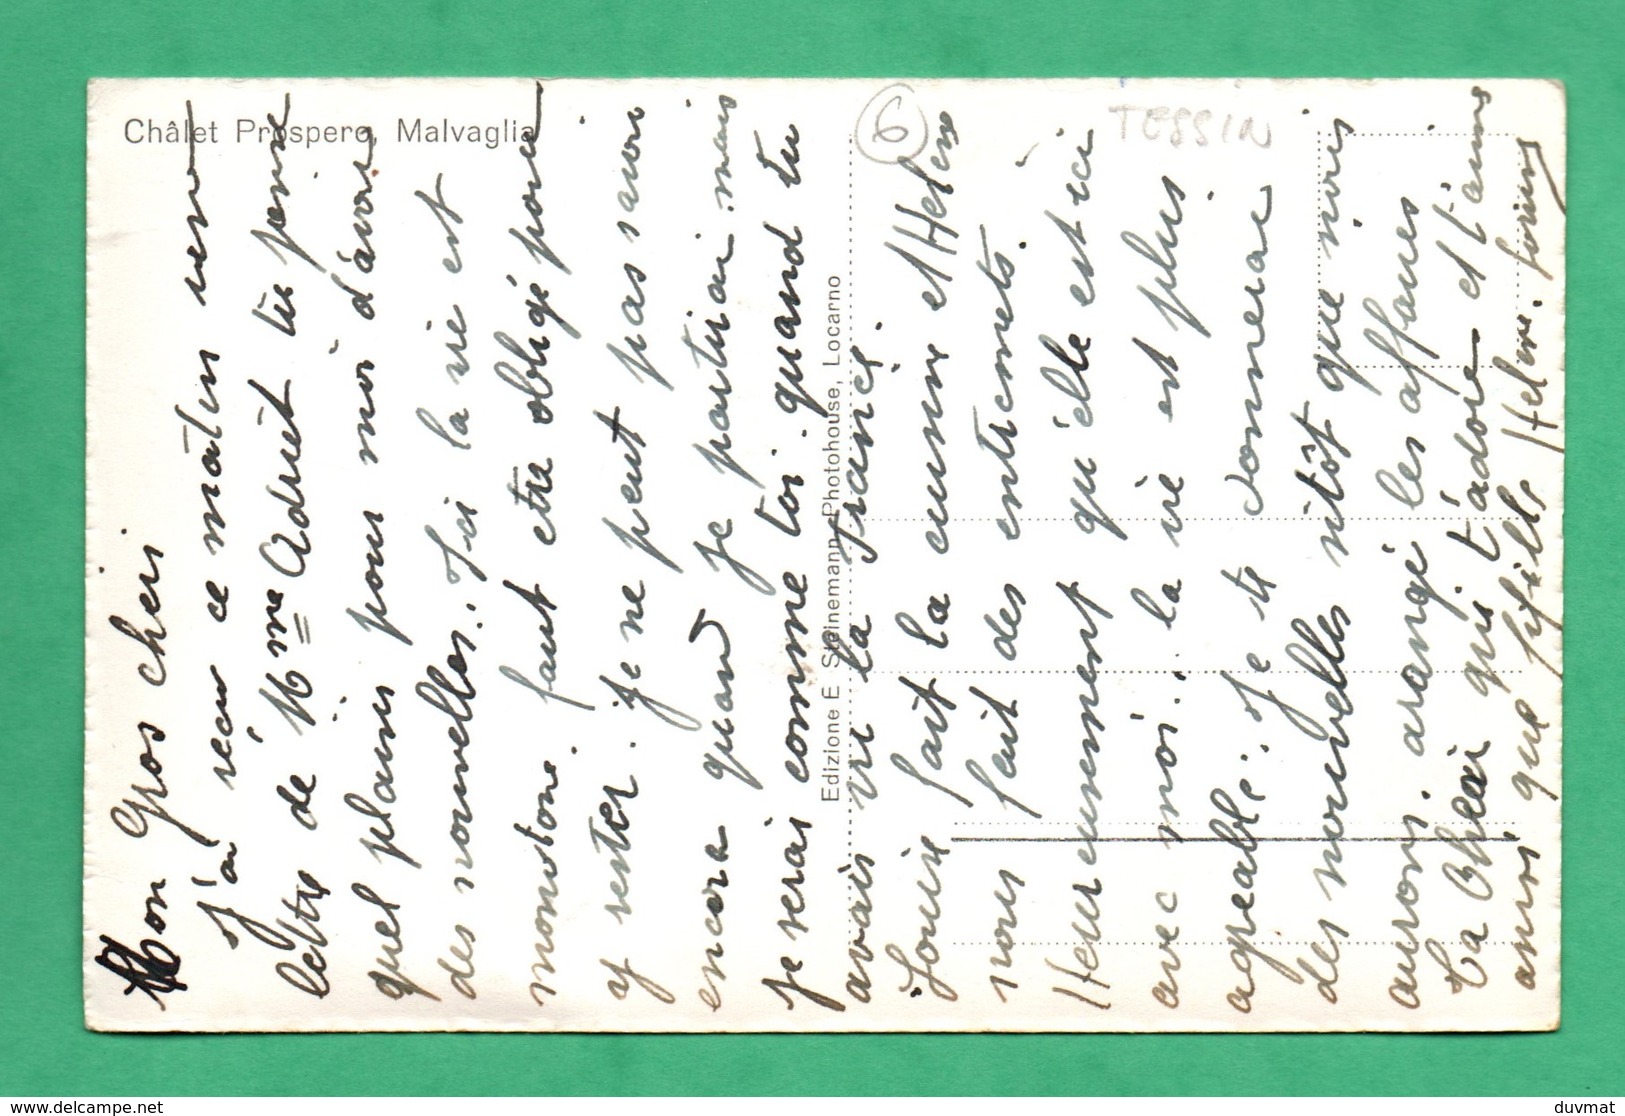 Châlet Prospero, Malvaglia
6
TESSIN
Edizione E Steinemann, Photohouse, Locarno
Mon Gros cheri
J'ai récu ce mâtin une
lettre de Mme Adriet tu pense
quel plaisir pour moi d'avoir
des nouvelles. Ici la vie est
monotone faut etre obligé pour
y rester. je ne peut pas savoir
encore quand je partirai mais
je serai comme toi quand tu
avais vu la France.
Louise fait la cuisine et Helene
nous fait des entremets.
Heureusement qu'elle est ici
avec moi.. la vie est plus
agreable. Je te donnerai
des nouvelles vitôt que nous
aurons arangé les affaires
Ta Cheri qui t'adore et t'aime
ainsi que fifille Helene.
duvmat
www.delcampe.net